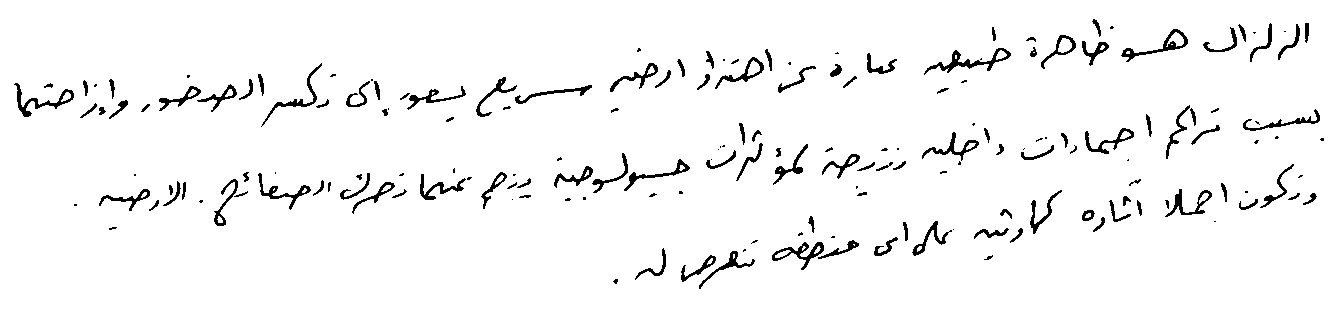 الزلزال هو ظاهرة طبيعية عبارة عن اهتزاز ارضية سريع يعود إلى تكسر الصخور وإزاحتها
بسبب تراكم اجهادات داخلية نتيجة لمؤثرات جيولوجية ينجم عنها تحرك الصفائح . الارضية .
وتكون اجمالا آثاره كارثية على اي منطقة تتعرض له .